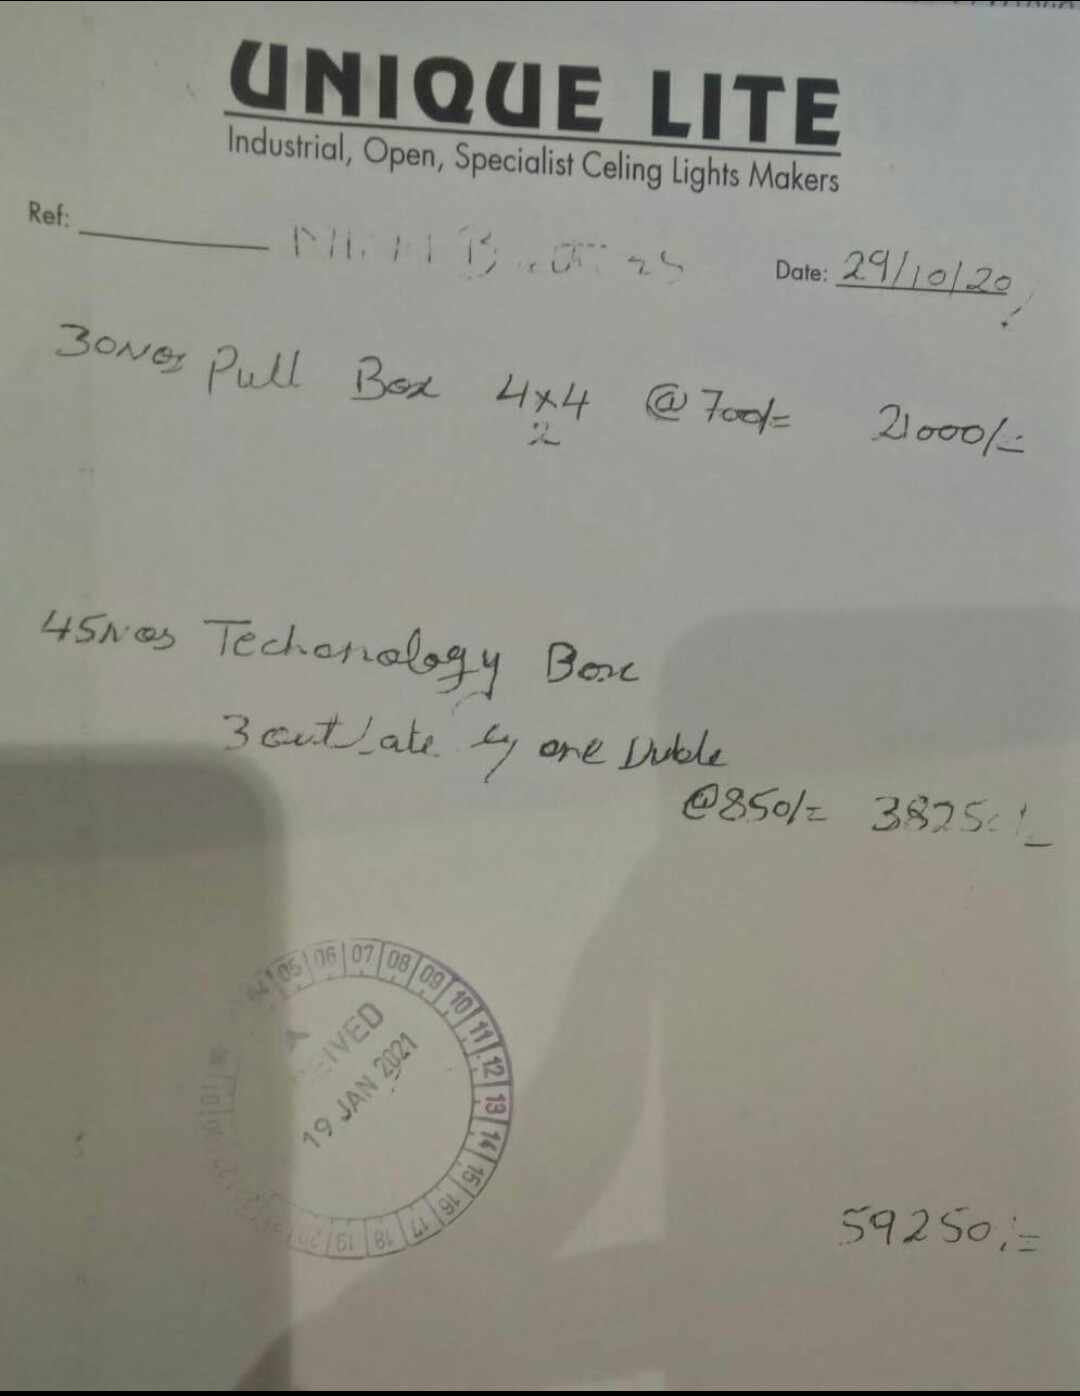 UNIQUE LITE
Industrial, Open, Specialist Celing Lights Makers
Ref:
Date: 29/10/20
30Nos Pull Box 4x4 @ 700/= 21000/=
2
45Nos Techonology Box
3 out late by one Duble
@850/= 38250/=
04 05 06 07 08 09 10 11 12 13 14 15 16 17 18 19 20
19 JAN 2021
59250/=